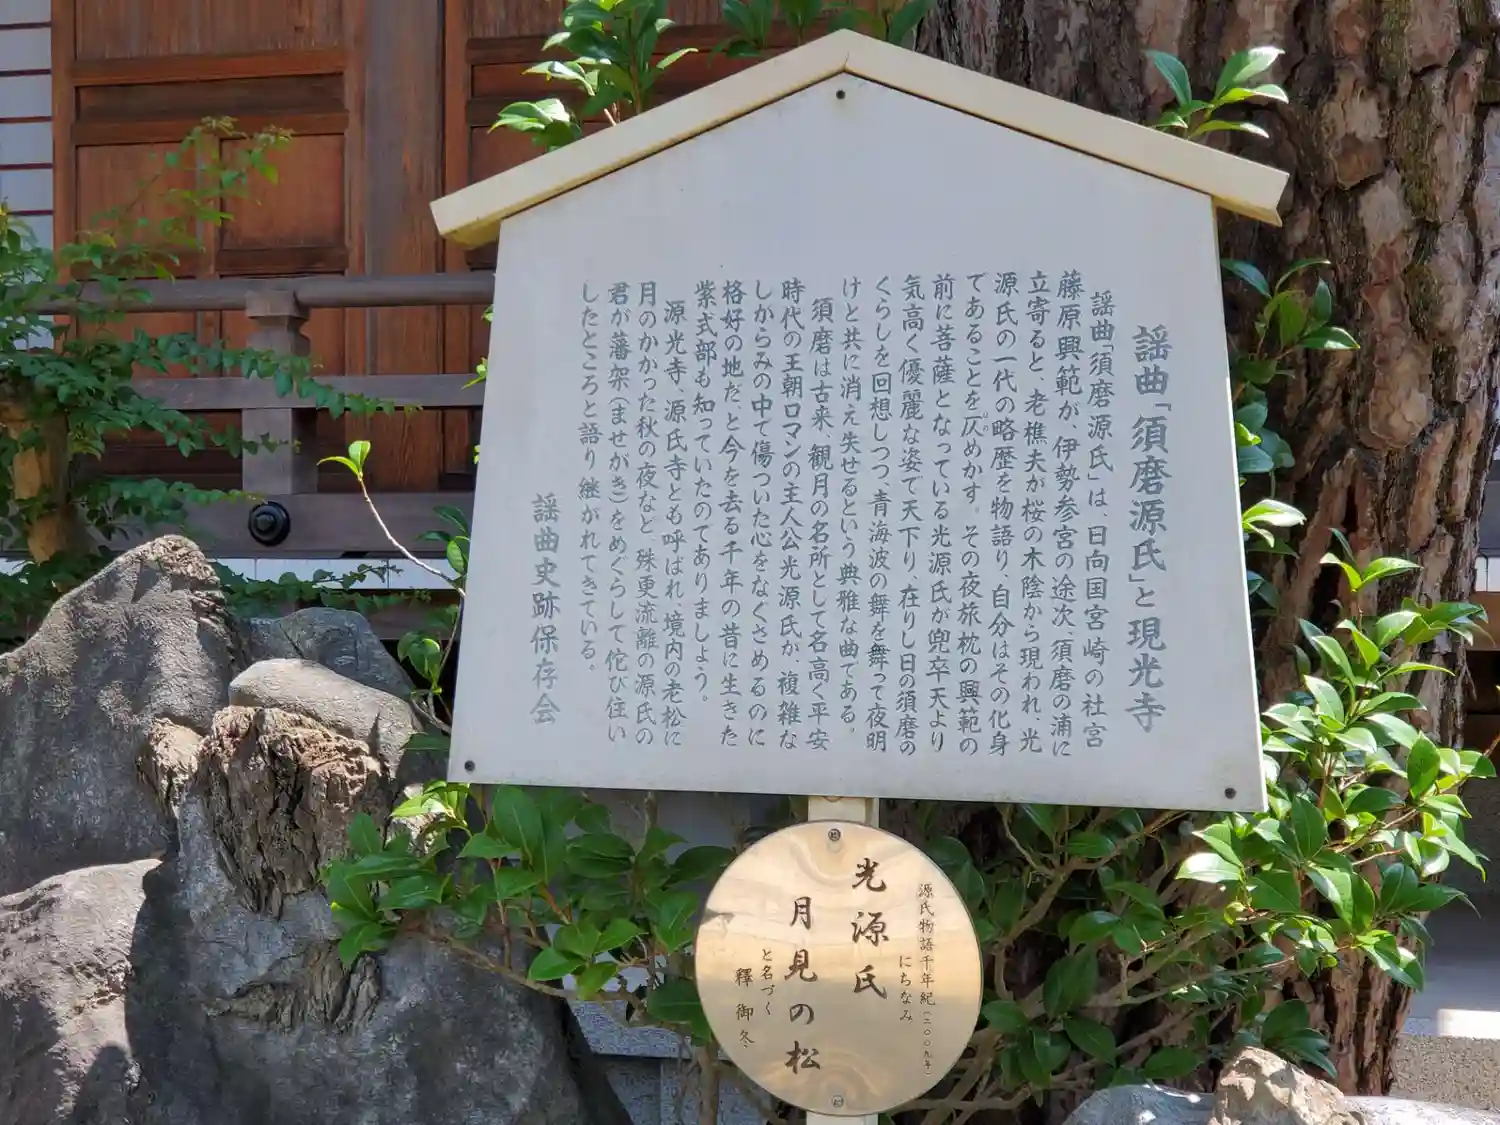 謡曲「須磨源氏」と現光寺
謡曲「須磨源氏」は、日向国宮崎の社宮
藤原興範が、伊勢参宮の途次、須磨の浦に
立寄ると、老樵夫が桜の木陰から現われ、光
源氏の一代の略歴を物語り、自分はその化身
であることを仄めかす。その夜旅枕の興範の
前に菩薩となっている光源氏が兜卒天より
気高く優麗な姿で天下り、在りし日の須磨の
くらしを回想しつつ、青海波の舞を舞って夜明
けと共に消え失せるという典雅な曲である。
須磨は古来、観月の名所として名高く平安
時代の王朝ロマンの主人公光源氏が、複雑な
しからみの中で傷ついた心をなぐさめるのに
格好の地だ、と今を去る千年の昔に生きた
紫式部も知っていたのでありましょう。
源光寺、源氏寺とも呼ばれ、境内の老松に
月のかかった秋の夜など、殊更流離の源氏の
君が藩架(ませがき)をめぐらして佗び住い
したところと語り継がれてきている。
謡曲史跡保存会
源氏物語千年紀(二〇〇九年)
にちなみ
光源氏
月見の松
と名づく
釋御冬